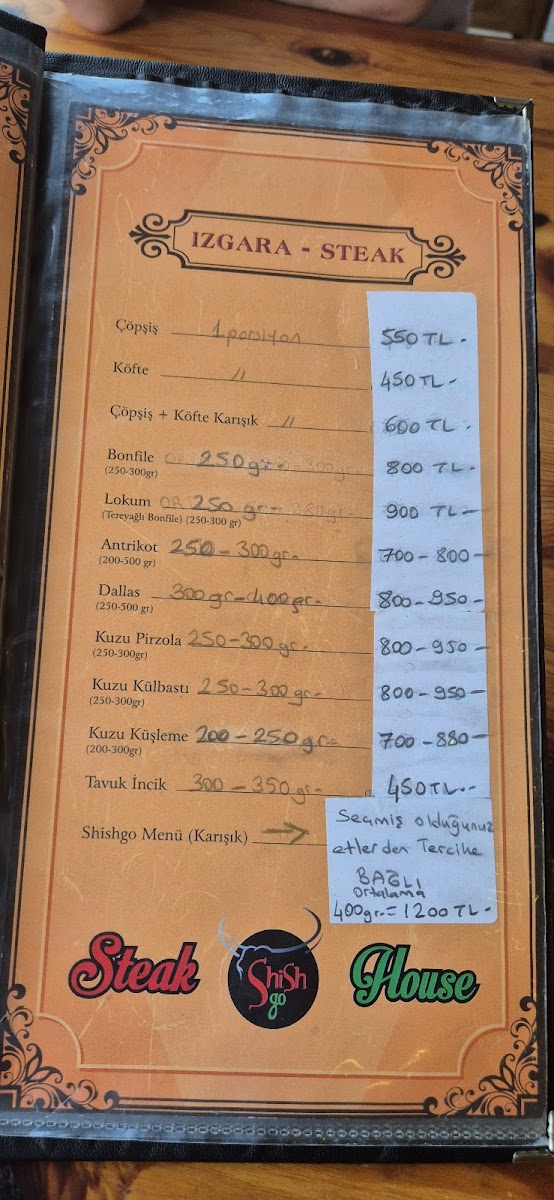 IZGARA - STEAK
Çöpşiş 1 porsiyon 550 TL -
Köfte " 450 TL -
Çöpşiş + Köfte Karışık " 600 TL -
Bonfile 250 gr - 800 TL -
(250-300gr)
Lokum 250 gr - 900 TL -
(Tereyağlı Bonfile) (250-300 gr)
Antrikot 250 - 300 gr - 700 - 800 -
(200-500 gr)
Dallas 300 gr - 400 gr - 800 - 950 -
(250-500 gr)
Kuzu Pirzola 250 - 300 gr - 800 - 950 -
(250-300gr)
Kuzu Külbastı 250 - 300 gr - 800 - 950 -
(250-300gr)
Kuzu Küşleme 200 - 250 gr - 700 - 880 -
(200-300gr)
Tavuk İncik 300 - 350 gr - 450 TL -
Shishgo Menü (Karışık) →
Seçmiş olduğunuz
etlerden Tercihe
BAĞLI
ortalama
400gr = 1200 TL -
Steak Shish go House